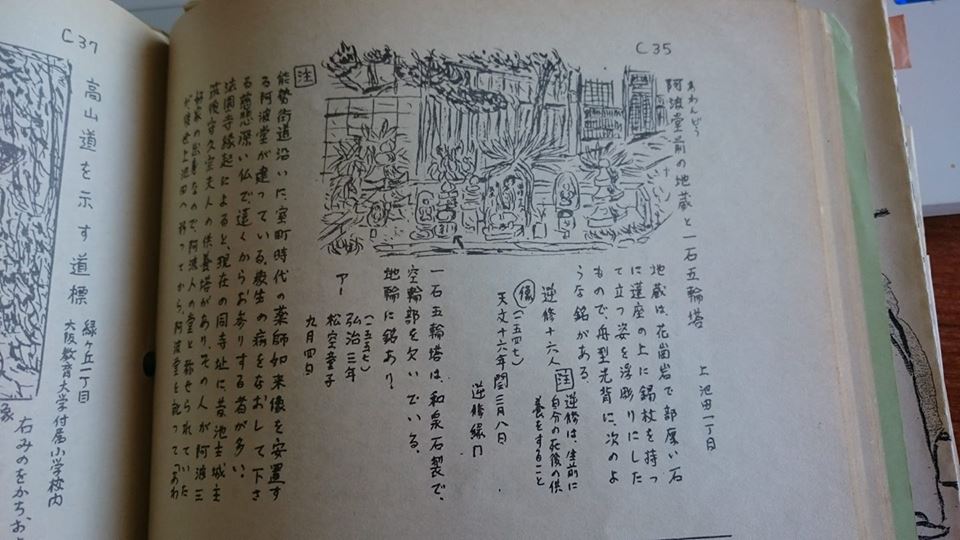 C35
あわんどう
阿波堂前の地蔵と一石五輪塔
上池田一丁目
地蔵は、花崗岩で部厚い石
に蓮座の上に錫杖を持っ
て立つ姿を浮彫りにした
もので、舟型光背に、次のよ
うな銘がある。
逆修十六人
注 逆修は、生前に
自分の死後の供
養をすること
(一五四七)
天文十六年閏三月八日
逆修縁
一石五輪塔は、和泉石製で、
空輪部を欠いでいる。
地輪に銘あり?
(一五五七)
弘治三年
アー 松空童子
九月四日
注
能勢街道沿いに、室町時代の薬師如来像を安置す
る阿波堂が建っている。数生の病をなおして下さ
る慈悲深い仏で、遠くからお参りする者が多い。
法園寺縁起によると、現在の同寺址に、昔池田城主
筑後守久宗夫人の供養塔があり、その人が阿波三
好家の出なので、阿波人の堂と称せられていた
が後世上池田へ移ってから、阿波堂と訛って「あわ
C37
高山道を示す道標
緑ヶ丘一丁目
大阪教育大学付属小学校内
右みのをかちおよ